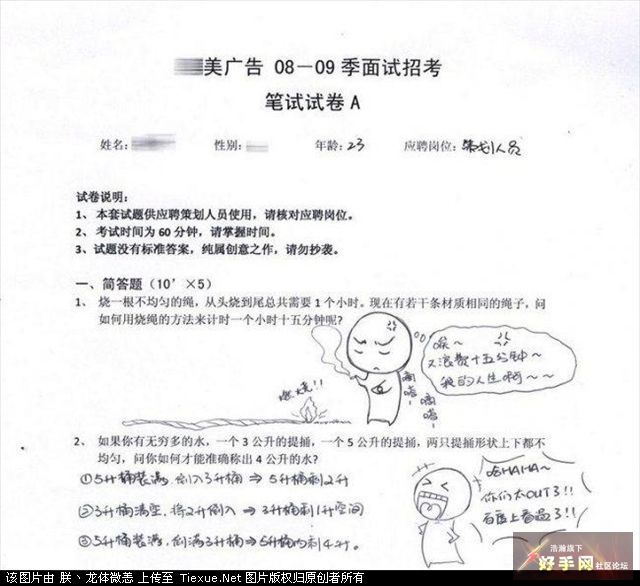 美广告 08—09 季面试招考
笔试试卷 A
姓名: 性别: 年龄: 23 应聘岗位: 策划人员
试卷说明:
1、 本套试题供应聘策划人员使用，请核对应聘岗位。
2、 考试时间为 60 分钟，请掌握时间。
3、 试题没有标准答案，纯属创意之作，请勿抄袭。
一、简答题（10'×5）
1、 烧一根不均匀的绳，从头烧到尾总共需要 1 个小时。现在有若干条材质相同的绳子，问
如何用烧绳的方法来计时一个小时十五分钟呢?
唉~
又浪费十五分钟~
我的人生啊~~
燃烧!!
嘀嗒~
嘀嗒~
2、 如果你有无穷多的水，一个 3 公升的提捅，一个 5 公升的提捅，两只提捅形状上下都不
均匀，问你如何才能准确称出 4 公升的水?
①5升桶装满, 倒入3升桶 ⇒ 5升桶剩2升
②3升桶清空, 将2升倒入 ⇒ 3升桶剩1升空间
③5升桶装满, 倒满3升桶⇒5升桶内剩4升。
哈HAHA~
你们太OUT了!!
百度上看过了!!
浩瀚旗下
好手网 社区论坛
该图片由 朕丶龙体微恙 上传至 Tiexue.Net 图片版权归原创者所有